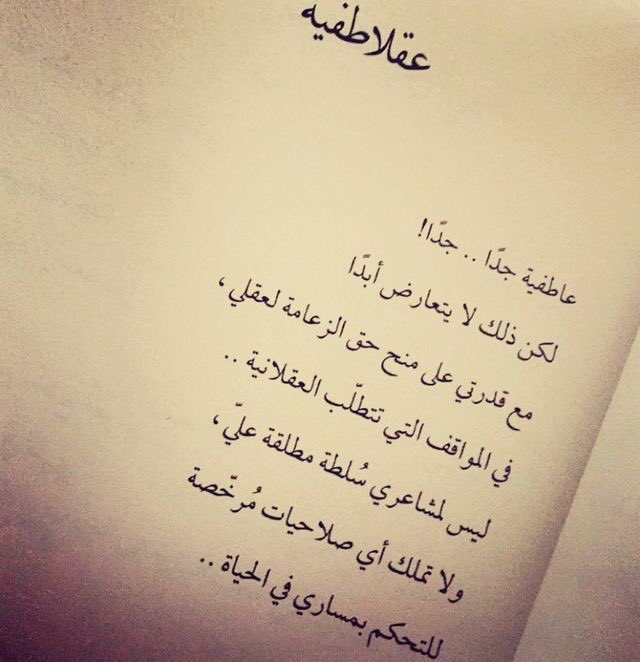 عقلاطفية
عاطفية جدًا .. جدًا!
لكن ذلك لا يتعارض أبدًا
مع قدرتي على منح حق الزعامة لعقلي ،
في المواقف التي تتطلّب العقلانية ..
ليس لمشاعري سُلطة مطلقة علّي ،
ولا تملك أي صلاحيات مُرخّصة
للتحكم بمساري في الحياة ..